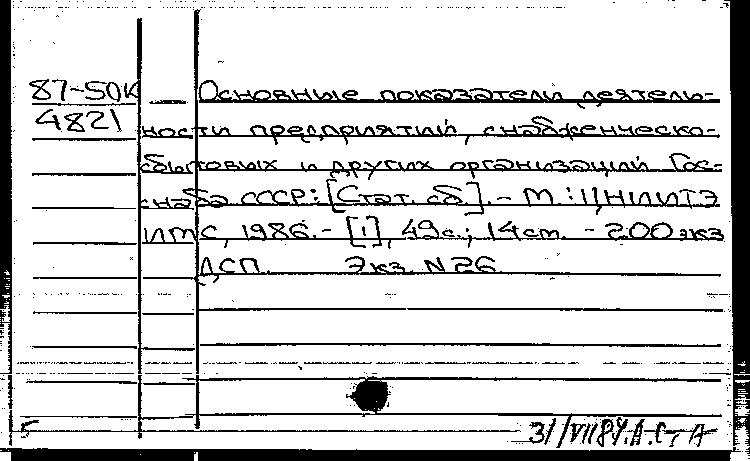 87-50К Основные показатели деятель-
4821 ности предприятий, снабженческо-
сбытовых и других организаций Гос-
снаба СССР: [Стат. сб.]. - М.: ЦНИИТЭ
ИМС, 1986. - [1], 49с.; 14см. - 200экз
ДСП. Экз. N 26
5